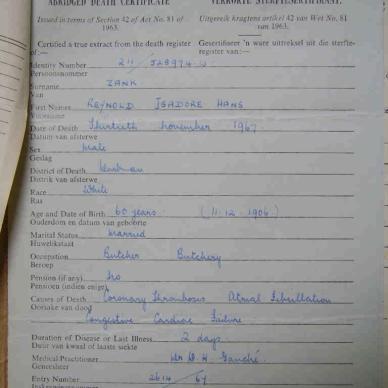 ABRIDGED DEATH CERTIFICATE VERKORTE STERFTESERTIFIKAAT.
Issued in terms of Section 42 of Act No. 81 of 1963. Uitgereik kragtens artikel 42 van Wet No. 81 van 1963.
Certified a true extract from the death register of:— Gesertifiseer 'n ware uittreksel uit die sterfte-register van:—
Identity Number 211/
Persoonsnommer
Surname ZANK
Van
First Names REYNOLD ISADORE HANS
Voorname
Date of Death Thirtieth November 1967
Datum van afsterwe
Sex Male
Geslag
District of Death
Distrik van afsterwe
Race White
Ras
Age and Date of Birth 60 years (11.12.1906)
Ouderdom en datum van geboorte
Marital Status Married
Huwelikstaat
Occupation Butcher Butchery
Beroep
Pension (if any) No
Pensioen (indien enige)
Causes of Death Coronary Thrombosis Atrial Fibrillation
Oorsake van dood
Congestive Cardiac Failure
Duration of Disease or Last Illness 2 days
Duur van kwaal of laaste siekte
Medical Practitioner
Geneesheer
Entry Number 2614/67
Inskrywingsnommer